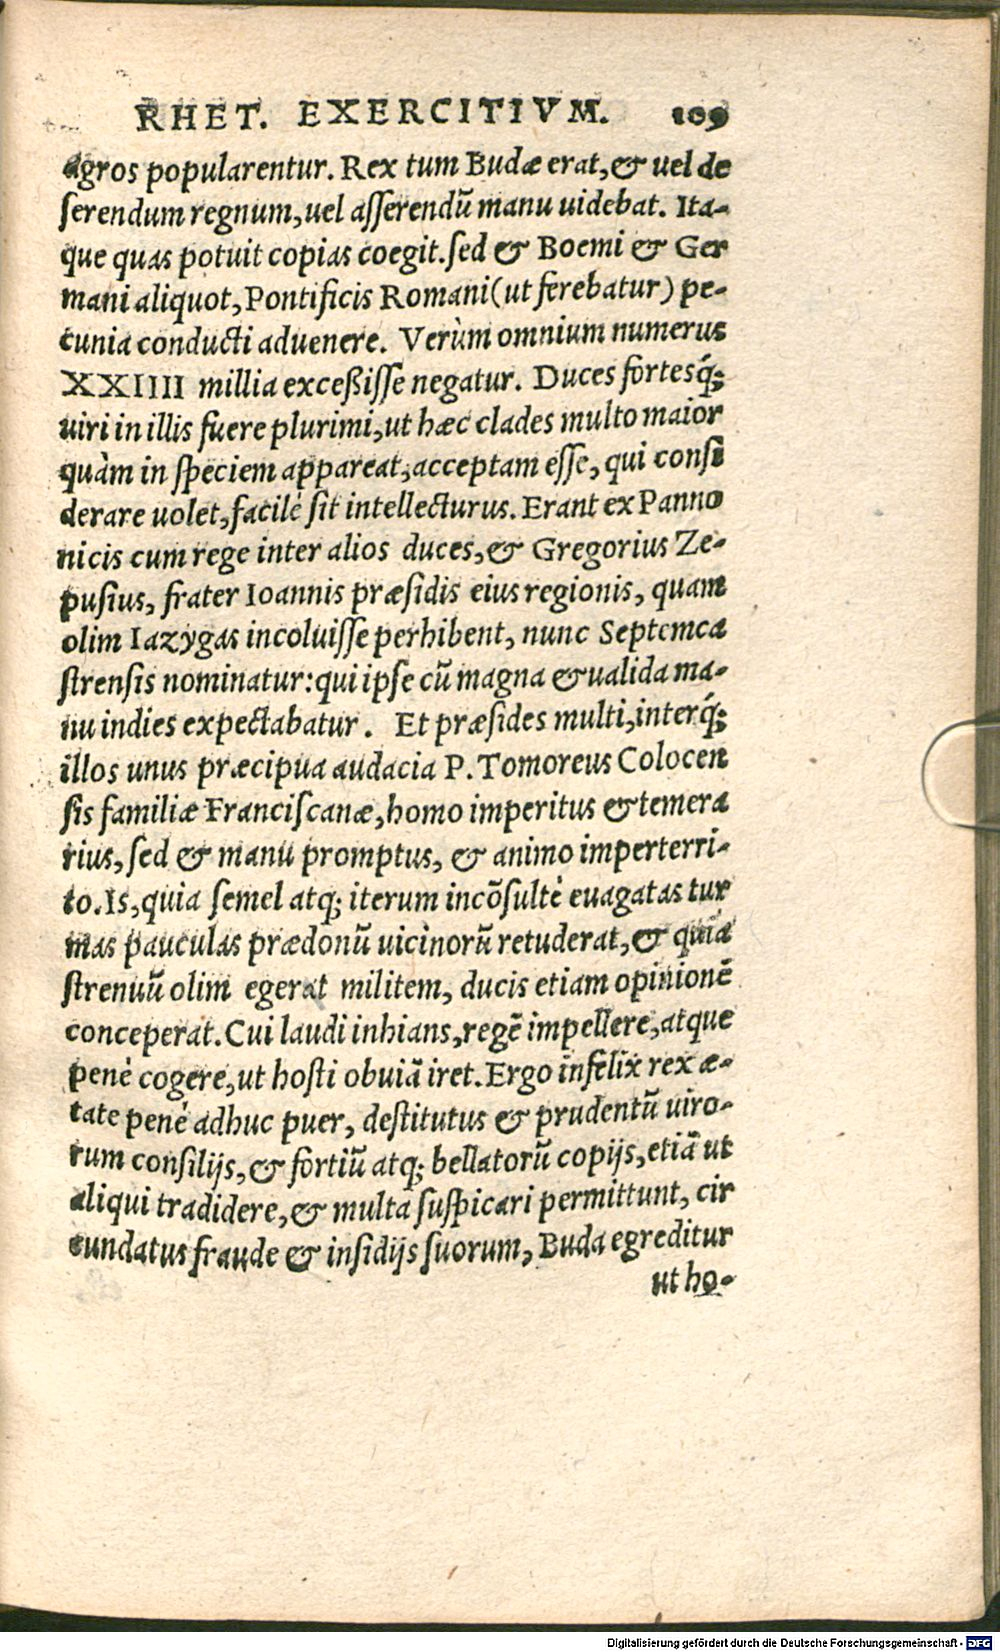 RHET. EXERCITIVM. 109
agros popularentur. Rex tum Budæ erat, & uel de
serendum regnum, uel asserendũ manu uidebat. Ita-
que quas potuit copias coegit. sed & Boemi & Ger
mani aliquot, Pontificis Romani (ut ferebatur) pe-
cunia conducti aduenere. Verùm omnium numerus
XXIIII millia exceßisse negatur. Duces fortesq́;
uiri in illis fuere plurimi, ut hæc clades multo maior
quàm in speciem appareat, acceptam esse, qui consi
derare uolet, facilè sit intellecturus. Erant ex Panno
nicis cum rege inter alios duces, & Gregorius Ze-
pusius, frater Ioannis præsidis eius regionis, quam
olim Iazygas incoluisse perhibent, nunc Septemca
strensis nominatur: qui ipse cũ magna & ualida ma-
nu indies expectabatur. Et præsides multi, interq́;
illos unus præcipua audacia P. Tomoreus Colocen
sis familiæ Franciscanæ, homo imperitus & temera
rius, sed & manu promptus, & animo imperterri-
to. Is, quia semel atq; iterum incõsultè euagatas tur
mas pauculas prædonũ uicinorũ retuderat, & quia
strenuũ olim egerat militem, ducis etiam opinionẽ
conceperat. Cui laudi inhians, regẽ impellere, atque
penè cogere, ut hosti obuiã iret. Ergo infelix rex æ-
tate penè adhuc puer, destitutus & prudentũ uiro-
rum consilijs, & fortiũ atq; bellatorũ copijs, etiã ut
aliqui tradidere, & multa suspicari permittunt, cir
cundatus fraude & insidijs suorum, Buda egreditur
ut ho-
Digitalisierung gefördert durch die Deutsche Forschungsgemeinschaft - DFG